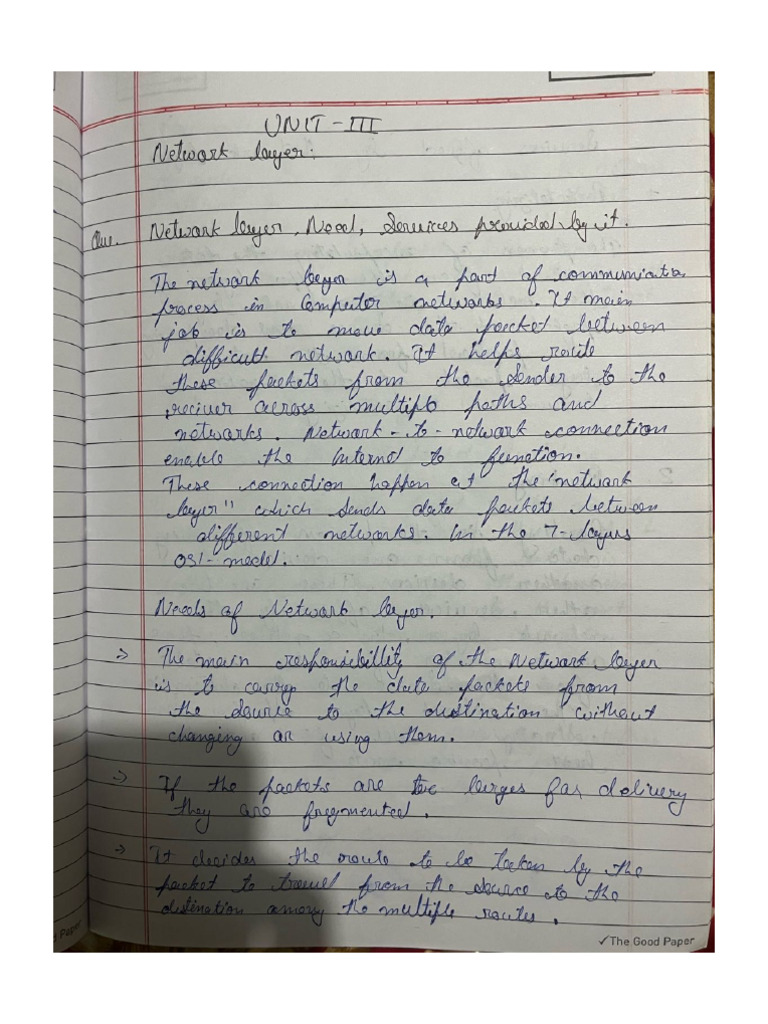 UNIT - III
Network layer:
Que. Network layer, Need, Services provided by it.
The network layer is a part of communicatn
process in Computer networks. It main
job is to move data packet between
difficult network. It helps route
these packets from the sender to the
reciver across multiple paths and
networks. Network-to-network connection
enable the Internet to function.
These connection happen at the "network
layer" which sends data packets between
different networks. In the 7-layers
OSI-model.
Needs of Network layer.
=> The main responsibillity of the Network layer
is to carry the data packets from
the source to the distination without
changing or using them.
=> If the packets are too larges for delivery
they are fregmented.
=> It decides the route to be taken by the
packet to travel from the source to the
distination among the multiple routes.
✓The Good Paper
Paper